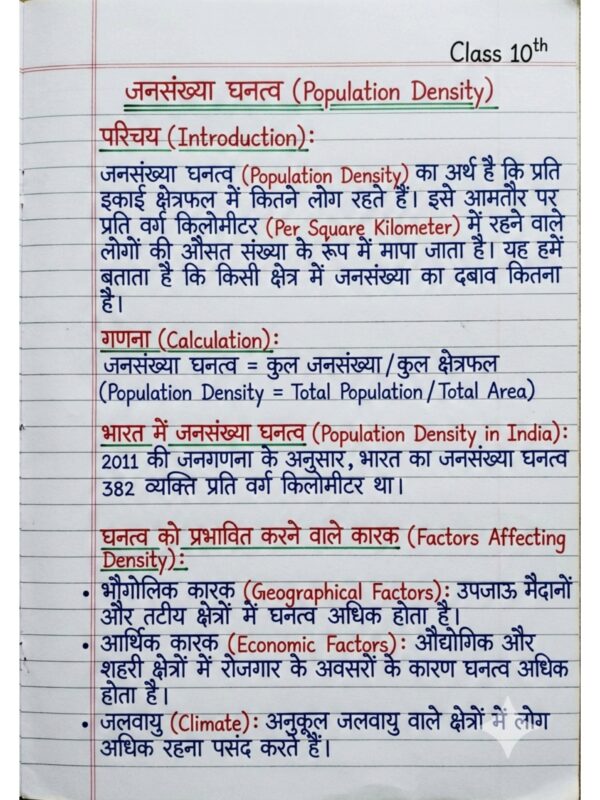 Class 10th
जनसंख्या घनत्व (Population Density)
परिचय (Introduction):
जनसंख्या घनत्व (Population Density) का अर्थ है कि प्रति
इकाई क्षेत्रफल में कितने लोग रहते हैं। इसे आमतौर पर
प्रति वर्ग किलोमीटर (Per Square Kilometer) में रहने वाले
लोगों की औसत संख्या के रूप में मापा जाता है। यह हमें
बताता है कि किसी क्षेत्र में जनसंख्या का दबाव कितना
है।
गणना (Calculation):
जनसंख्या घनत्व = कुल जनसंख्या/कुल क्षेत्रफल
(Population Density = Total Population/Total Area)
भारत में जनसंख्या घनत्व (Population Density in India):
2011 की जनगणना के अनुसार, भारत का जनसंख्या घनत्व
382 व्यक्ति प्रति वर्ग किलोमीटर था।
घनत्व को प्रभावित करने वाले कारक (Factors Affecting
Density):
• भौगोलिक कारक (Geographical Factors): उपजाऊ मैदानों
और तटीय क्षेत्रों में घनत्व अधिक होता है।
• आर्थिक कारक (Economic Factors): औद्योगिक और
शहरी क्षेत्रों में रोजगार के अवसरों के कारण घनत्व अधिक
होता है।
• जलवायु (Climate): अनुकूल जलवायु वाले क्षेत्रों में लोग
अधिक रहना पसंद करते हैं।